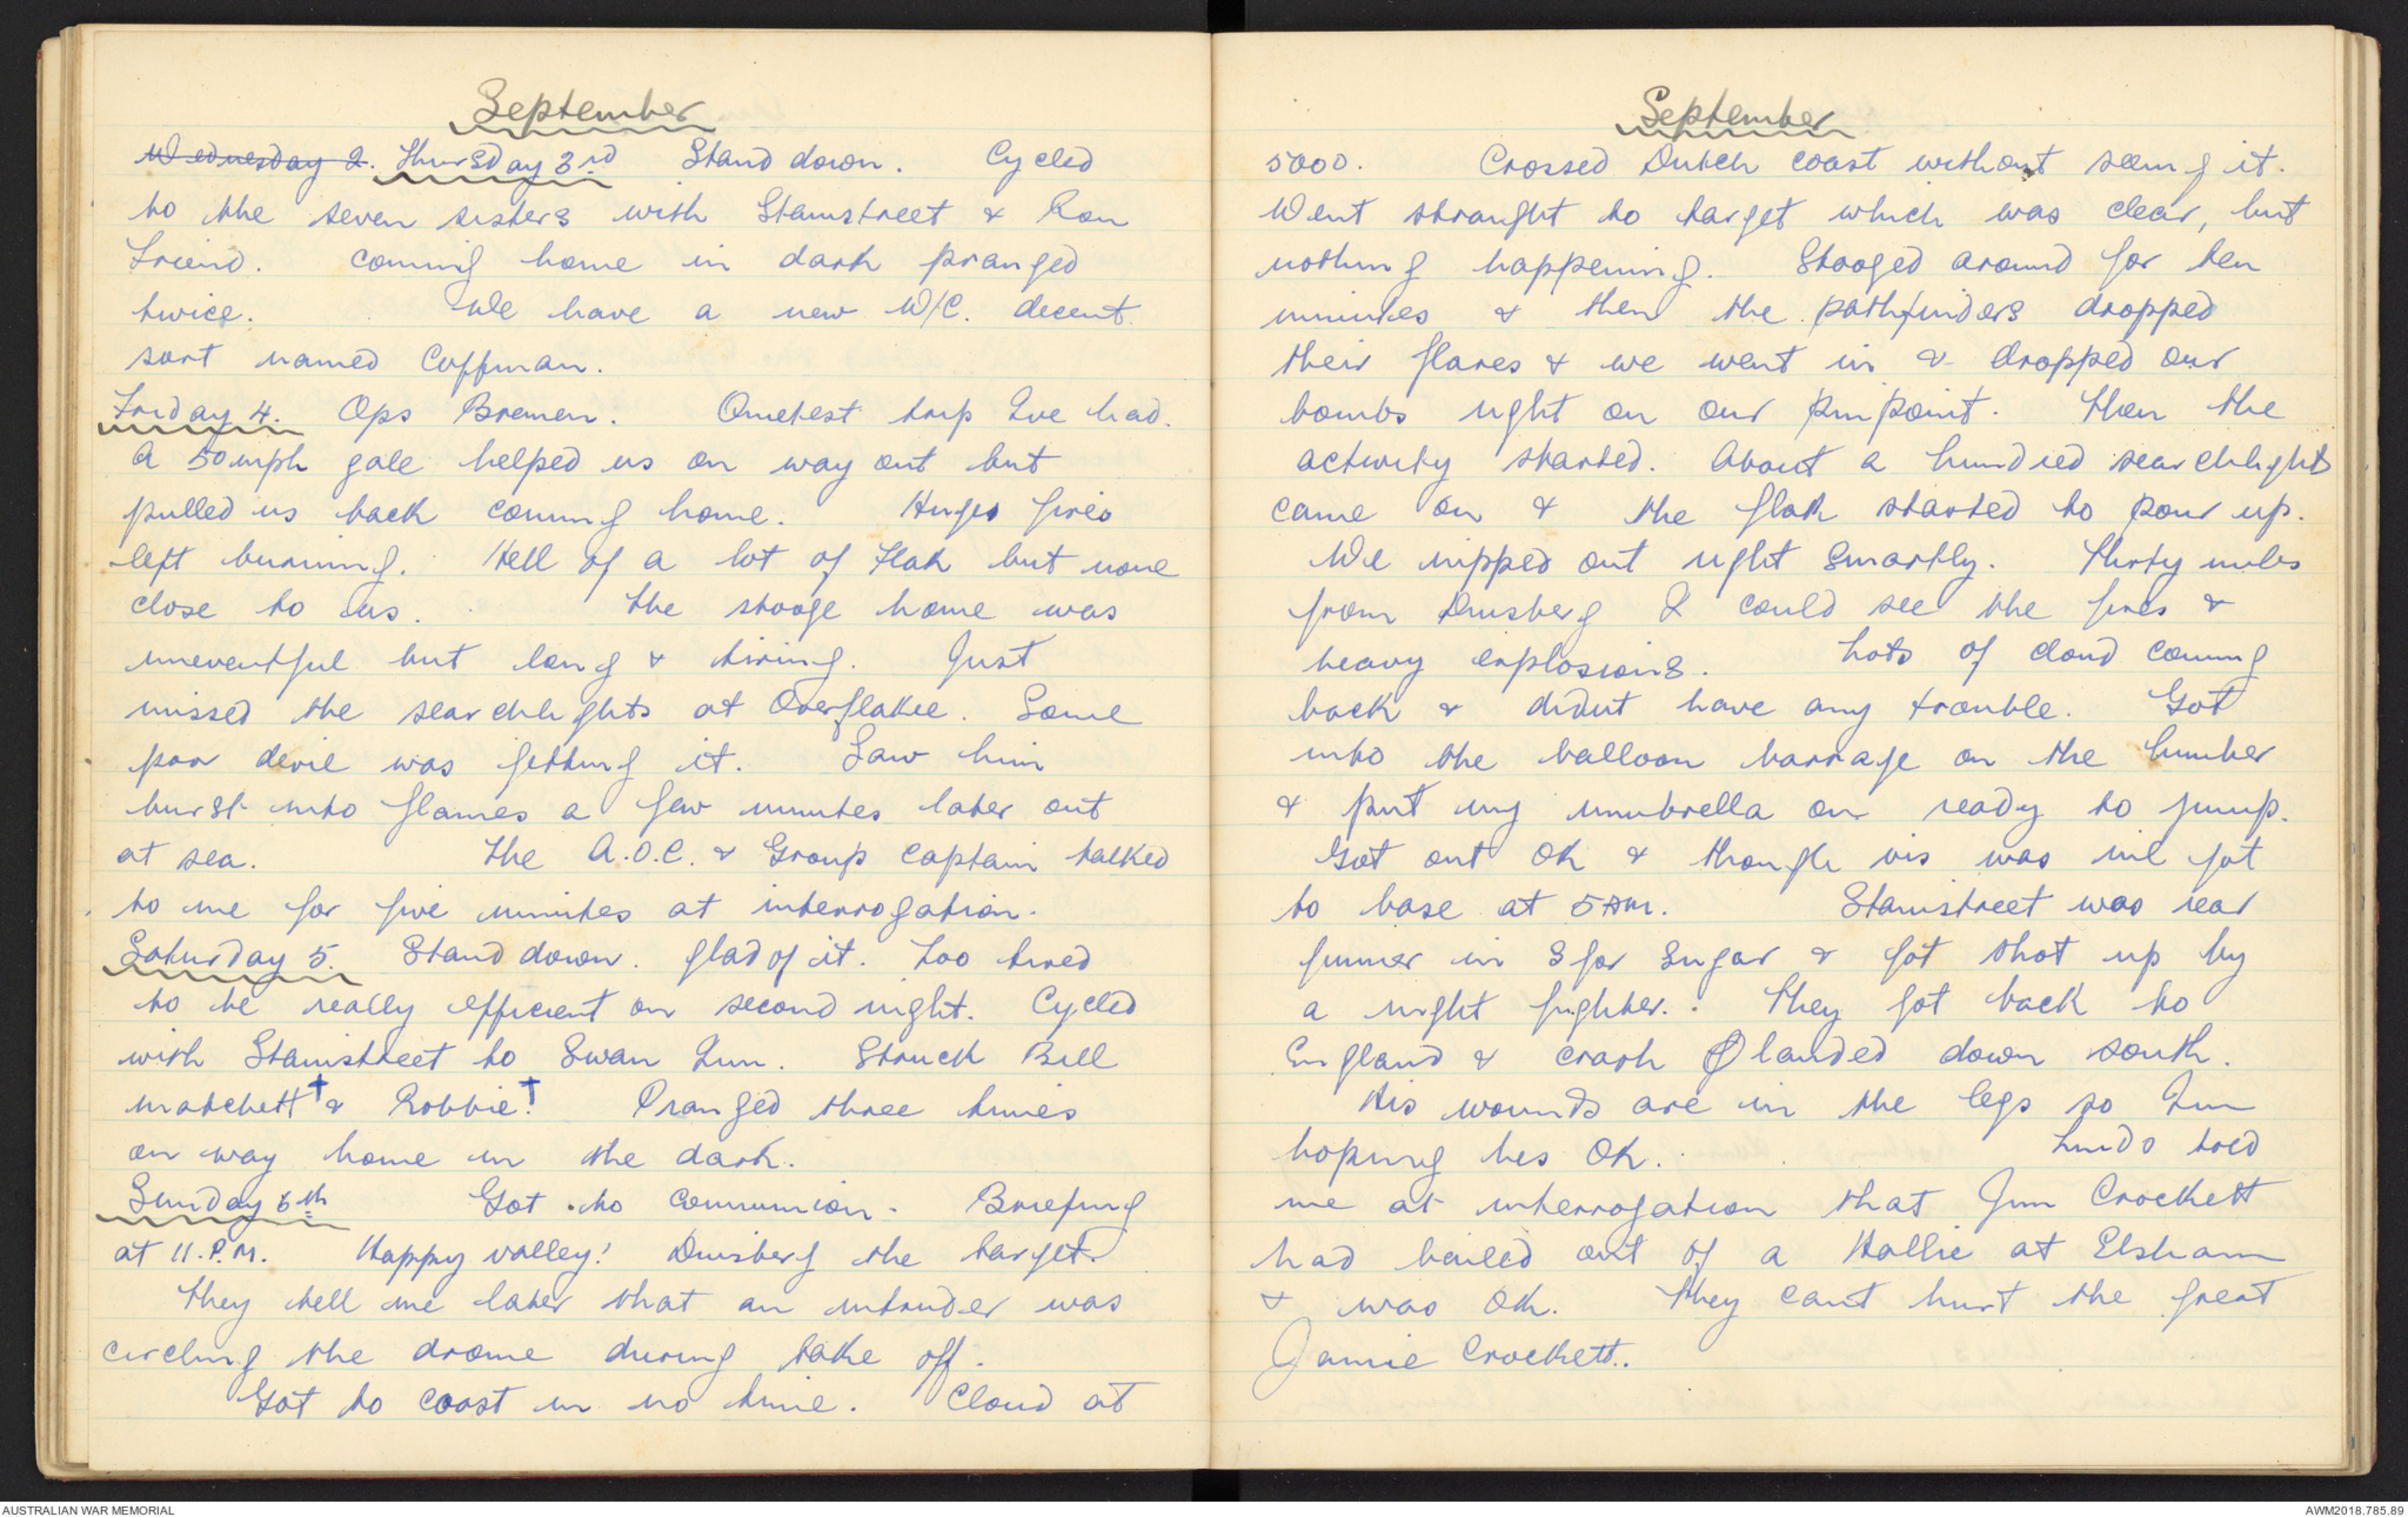 September
Wednesday 2. Thursday 3rd Stand down. Cycled
to the seven sisters with Stamstreet & Ron
Friend. Coming home in dark pranged
twice. We have a new W/C. decent
sort named Coffman.
Friday 4. Ops Bremen. Quietest trip Ive had.
A 50 mph gale helped us on way out but
pulled us back coming home. Huge fires
left burning. Hell of a lot of Flak but none
close to us. The stooge home was
uneventful but long & tiring. Just
missed the searchlights at Overflakee. Some
poor devil was getting it. Saw him
burst into flames a few minutes later out
at sea. The A.O.C. & Group Captain talked
to me for five minutes at interrogation.
Saturday 5. Stand down. glad of it. Too tired
to be really efficient on second night. Cycled
with Stamstreet to Swan Inn. Struck Bill
Matchett† & Robbie†. Pranged three times
on way home in the dark.
Sunday 6th Got to Communion. Briefing
at 11.P.M. Happy valley! Duisberg the target.
They tell me later that an intruder was
circling the drome during take off.
Got to coast in no time. Cloud at
September
5000. Crossed Dutch coast without seeing it.
Went straight to target which was clear, but
nothing happening. Stooged around for ten
minutes & then the pathfinders dropped
their flares & we went in & dropped our
bombs right on our pinpoint. Then the
activity started. About a hundred searchlights
came on & the flak started to pour up.
We nipped out right smartly. Thirty miles
from Duisberg I could see the fires &
heavy explosions. Lots of cloud coming
back & didnt have any trouble. Got
into the balloon barrage on the humber
& put my umbrella on ready to jump.
Got out OK & though vis was nil got
to base at 5 AM. Stamstreet was rear
gunner in S for Sugar & got shot up by
a night fighter. They got back to
England & crash landed down south.
His wounds are in the legs so Im
hoping hes OK. Lindo told
me at interrogation that Jim Crockett
had bailed out of a Hallie at Elsham
& was OK. They cant hurt the great
Jamie Crockett.
AUSTRALIAN WAR MEMORIAL
AWM2018.785.89